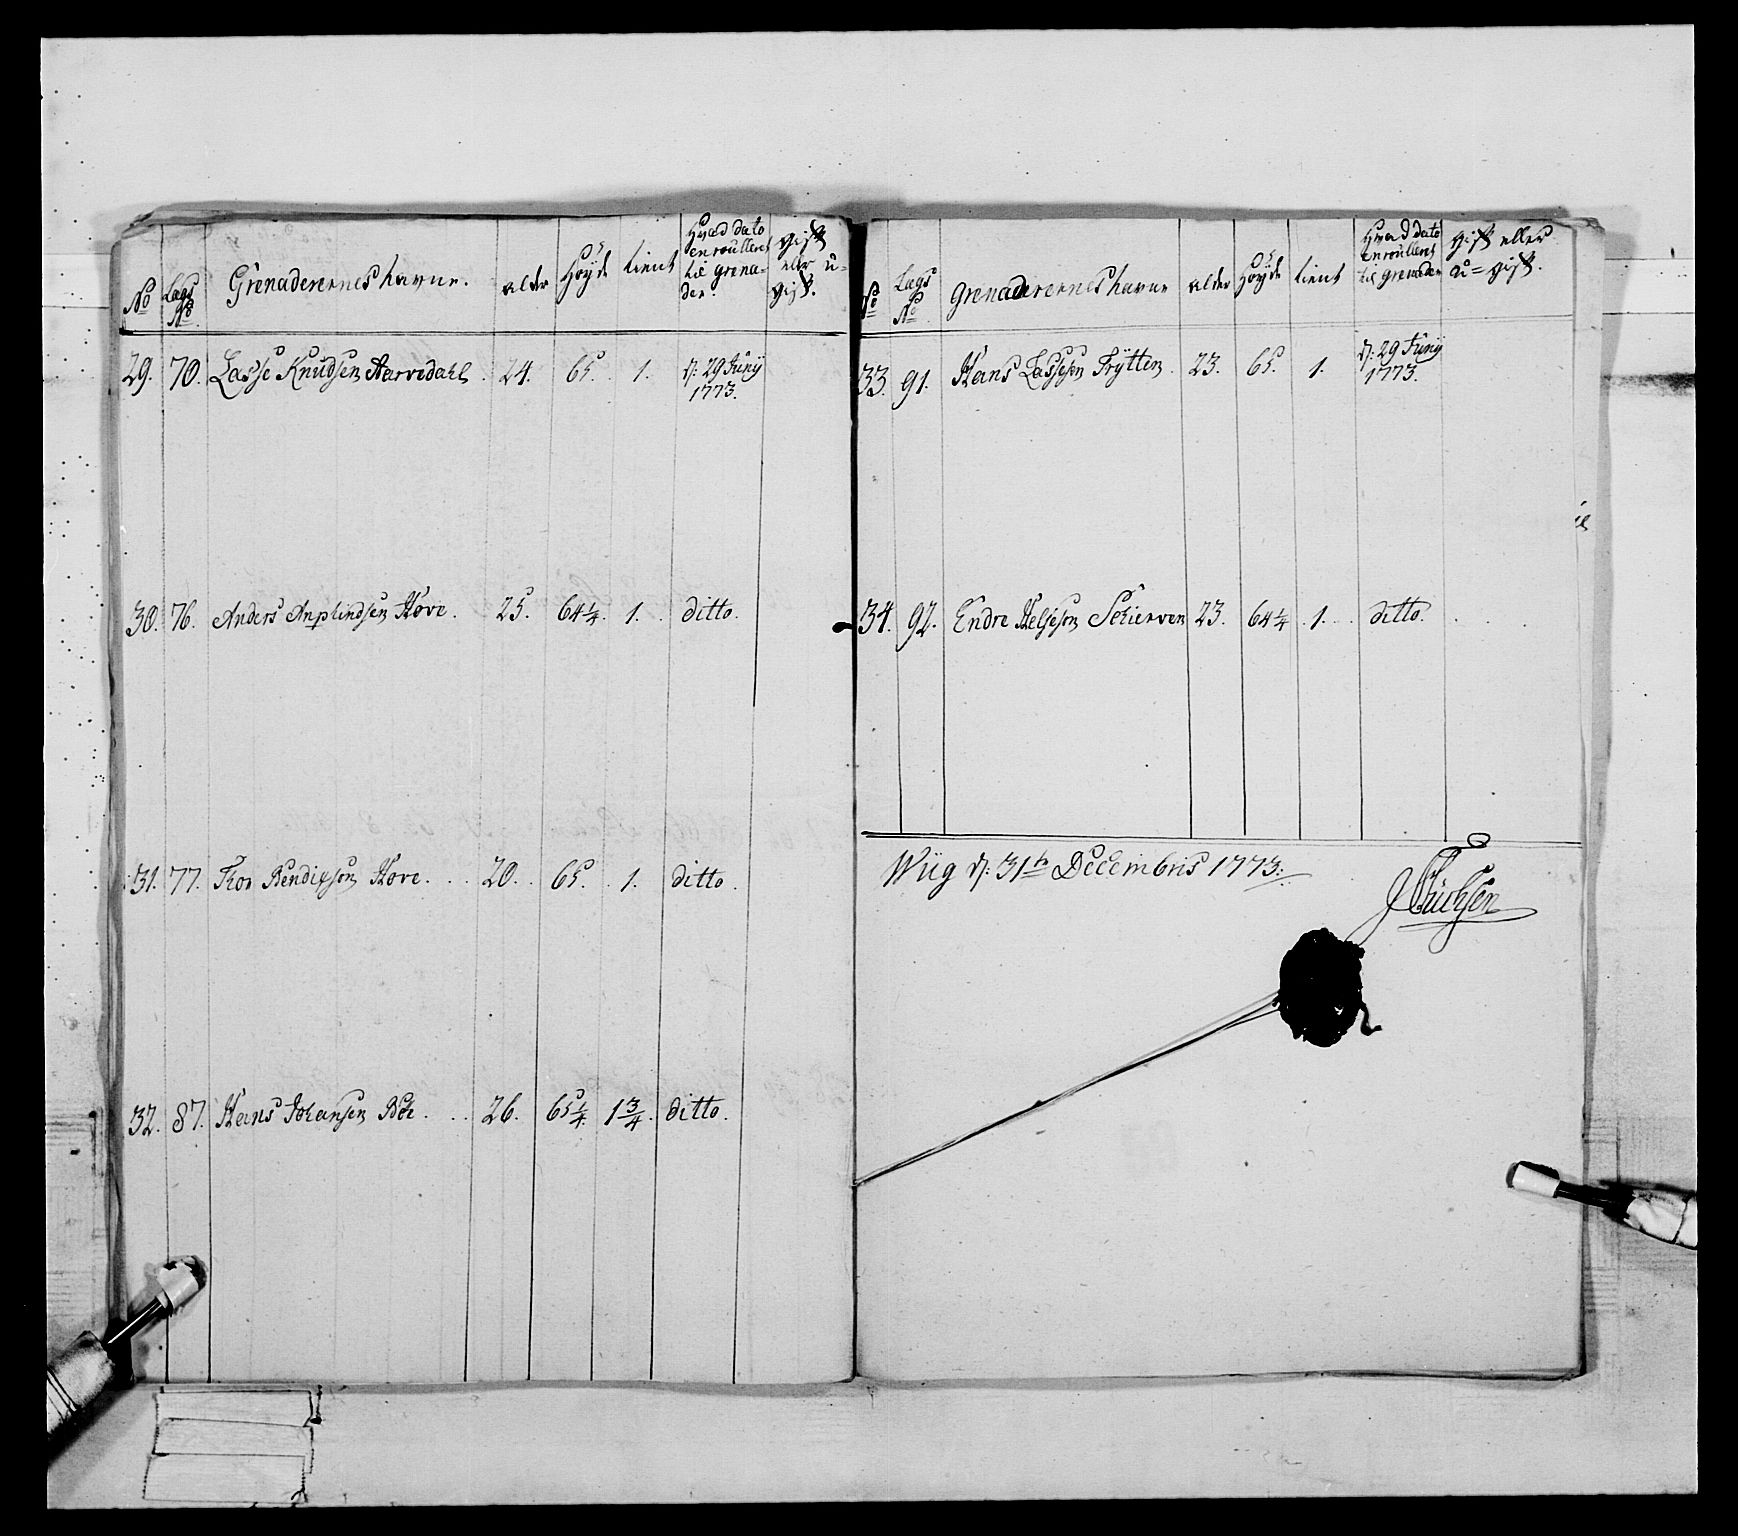 No | Lægs No | Grenaderernes Navne. | alder | Høyde | tient | Hvad dato enroulleret til grenader. | gift eller u=gift.
29. | 70. | Lasse Knudsen Aarvedahl. | 24. | 65. | 1. | d: 29 Juny 1773.
30. | 76. | Anders Amphindsen Hove. | 25. | 64 1/4. | 1. | ditto.
31. | 77. | Thor Bendixson Hove. | 20. | 65. | 1. | ditto.
32. | 87. | Hans Johansen Böe. | 26. | 65 1/4. | 1 3/4. | ditto.
No | Lægs No | grenaderernes navne | alder | Høyde | tient | Hvad dato enroulleret til grenader | gift eller u=gift.
33. | 91. | Hans Lassesen Trÿtten. | 23. | 65. | 1. | d: 29 Juny 1773.
34. | 92. | Endre Helgeson Schierven | 23. | 64 1/4 | 1. | ditto.
Wiig d: 31te Decembris 1773.